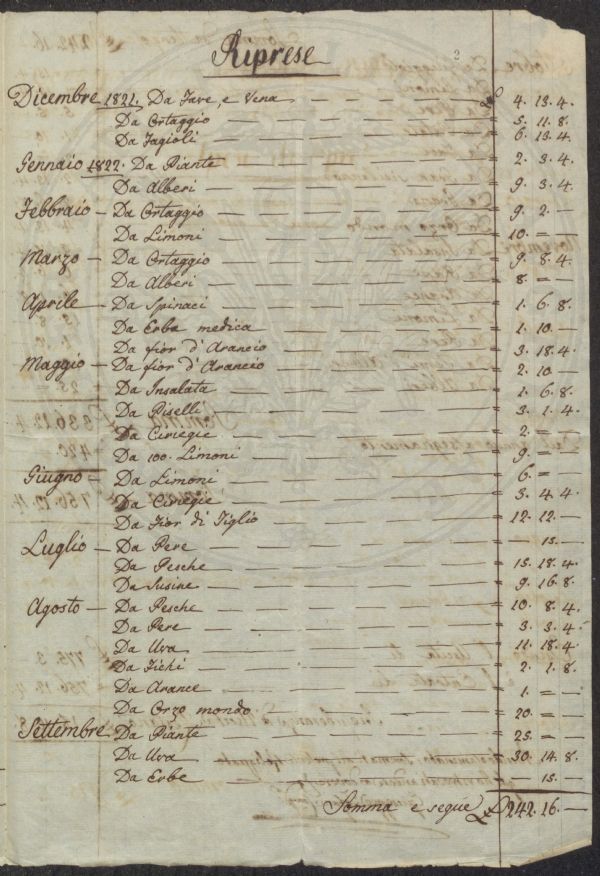 2
Riprese
Dicembre 1821. Da Fave, e Vena — £ 4. 13. 4.
Da Ortaggio — 5. 11. 8.
Da Fagioli — 6. 13. 4.
Gennaio 1822. Da Piante — 2. 3. 4.
Da Alberi — 9. 3. 4.
Febbraio — Da Ortaggio — 9. 2. —
Da Limoni — 10. = —
Marzo — Da Ortaggio — 9. 8. 4.
Da Alberi — 8. = —
Aprile — Da Spinaci — 1. 6. 8.
Da Erba medica — 1. 10. —
Da fior d'Arancio — 3. 18. 4.
Maggio — Da fior d'Arancio — 2. 10 —
Da Insalata — 1. 6. 8.
Da Piselli — 3. 1. 4.
Da Ciriegie — 2. = —
Da 100. Limoni — 9. = —
Giugno — Da Limoni — 6. = —
Da Ciriegie — 3. 4. 4.
Da Fior di Tiglio — 12. 12. —
Luglio — Da Pere — — 15. —
Da Pesche — 15. 18. 4.
Da Susine — 9. 16. 8.
Agosto — Da Pesche — 10. 8. 4.
Da Pere — 3. 3. 4.
Da Uva — 11. 18. 4.
Da Fichi — 2. 1. 8.
Da Arance — 1. = —
Da Orzo mondo — 20. = —
Settembre. Da Piante — 25. = —
Da Uva — 30. 14. 8.
Da Erbe — — 15. —
Somma e segue £ 242. 16. —